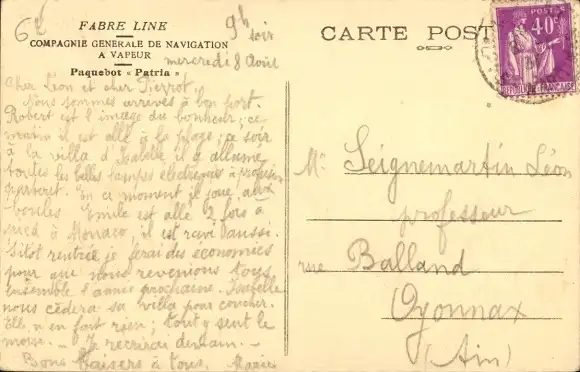 62
FABRE LINE
COMPAGNIE GENERALE DE NAVIGATION
A VAPEUR
Paquebot « Patria »
9h soir
mercredi 8 Août
Cher Léon et cher Pierrot.
Nous sommes arrivés à bon port.
Robert est l'image du bonheur; ce
matin il est allé à la plage; ce soir
à la villa d'Isabelle il a allumé
toutes les belles lampes électriques à
En ce moment il joue aux
boules. Emile est allé 2 fois à
pied à Monaco, il est ravi aussi.
Sitôt rentrée je ferai des économies
pour que nous revenions tous
ensemble l'année prochaine. Isabelle
nous cèdera sa villa pour coucher.
Elle n'en fait rien; tout y sent le
moisi. - Je récrirai demain. -
Bons Baisers à tous.
CARTE POST
POSTES
40c
Mr Seignemartin Léon
professeur
rue Balland
Oyonnax
(Ain)